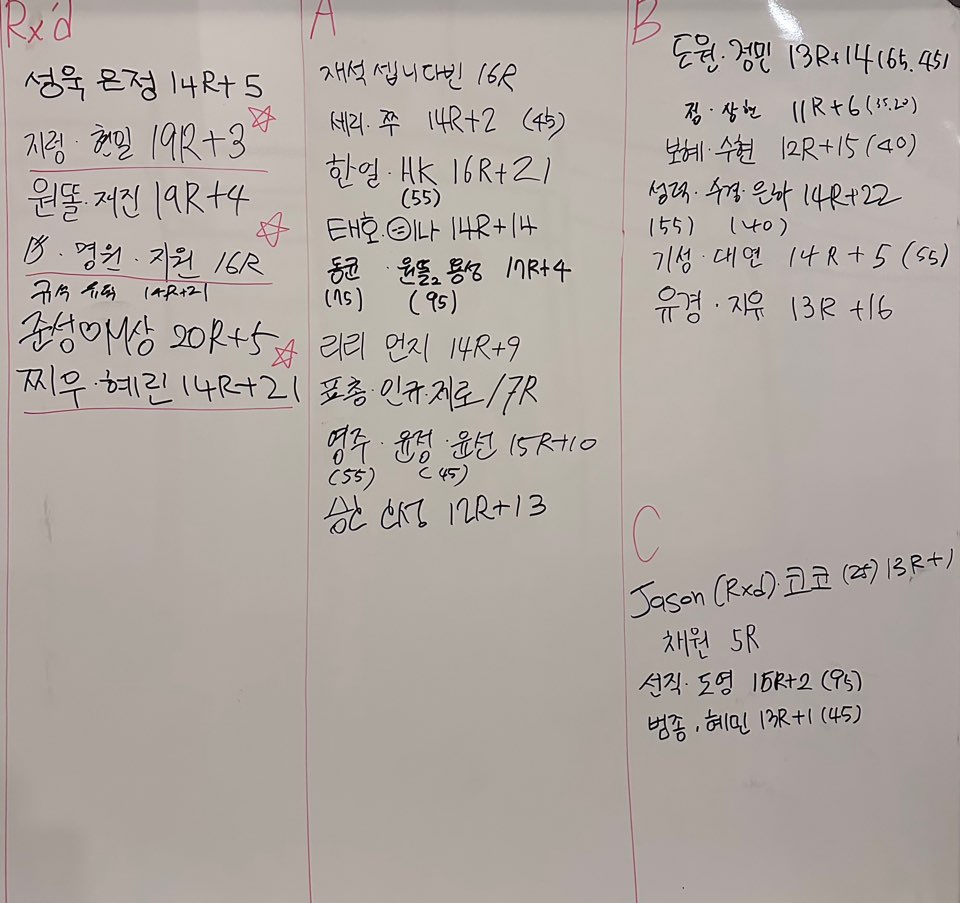 Rx'd
성욱 은정 14R+5
지령·현밀 19R+3
원똘·재진 19R+4
명원·지원 16R
규석 유덕 14R+21
준성♡M상 20R+5
찌우·혜린 14R+21
A
재석 셉니다빈 16R
세리·쭈 14R+2 (45)
한얼·HK 16R+21
(55)
태호·ㅡ나 14R+14
동균·원똘2 용성 17R+4
(75) (95)
리리 먼지 14R+9
표총·인규·제로 17R
영주·윤정·윤선 15R+10
(55) (45)
승한 산성 12R+13
B
도원·경민 13R+14 (65.45)
정·상현 11R+6 (35.20)
보혜·수현 12R+15 (40)
성덕·수경·은하 14R+22
(55) (40)
기성·대연 14R+5 (55)
유경·지유 13R+16
C
Jason (Rxd)·코코 (25) 13R+1
채원 5R
선직·도영 15R+2 (95)
범종·혜민 13R+1 (45)